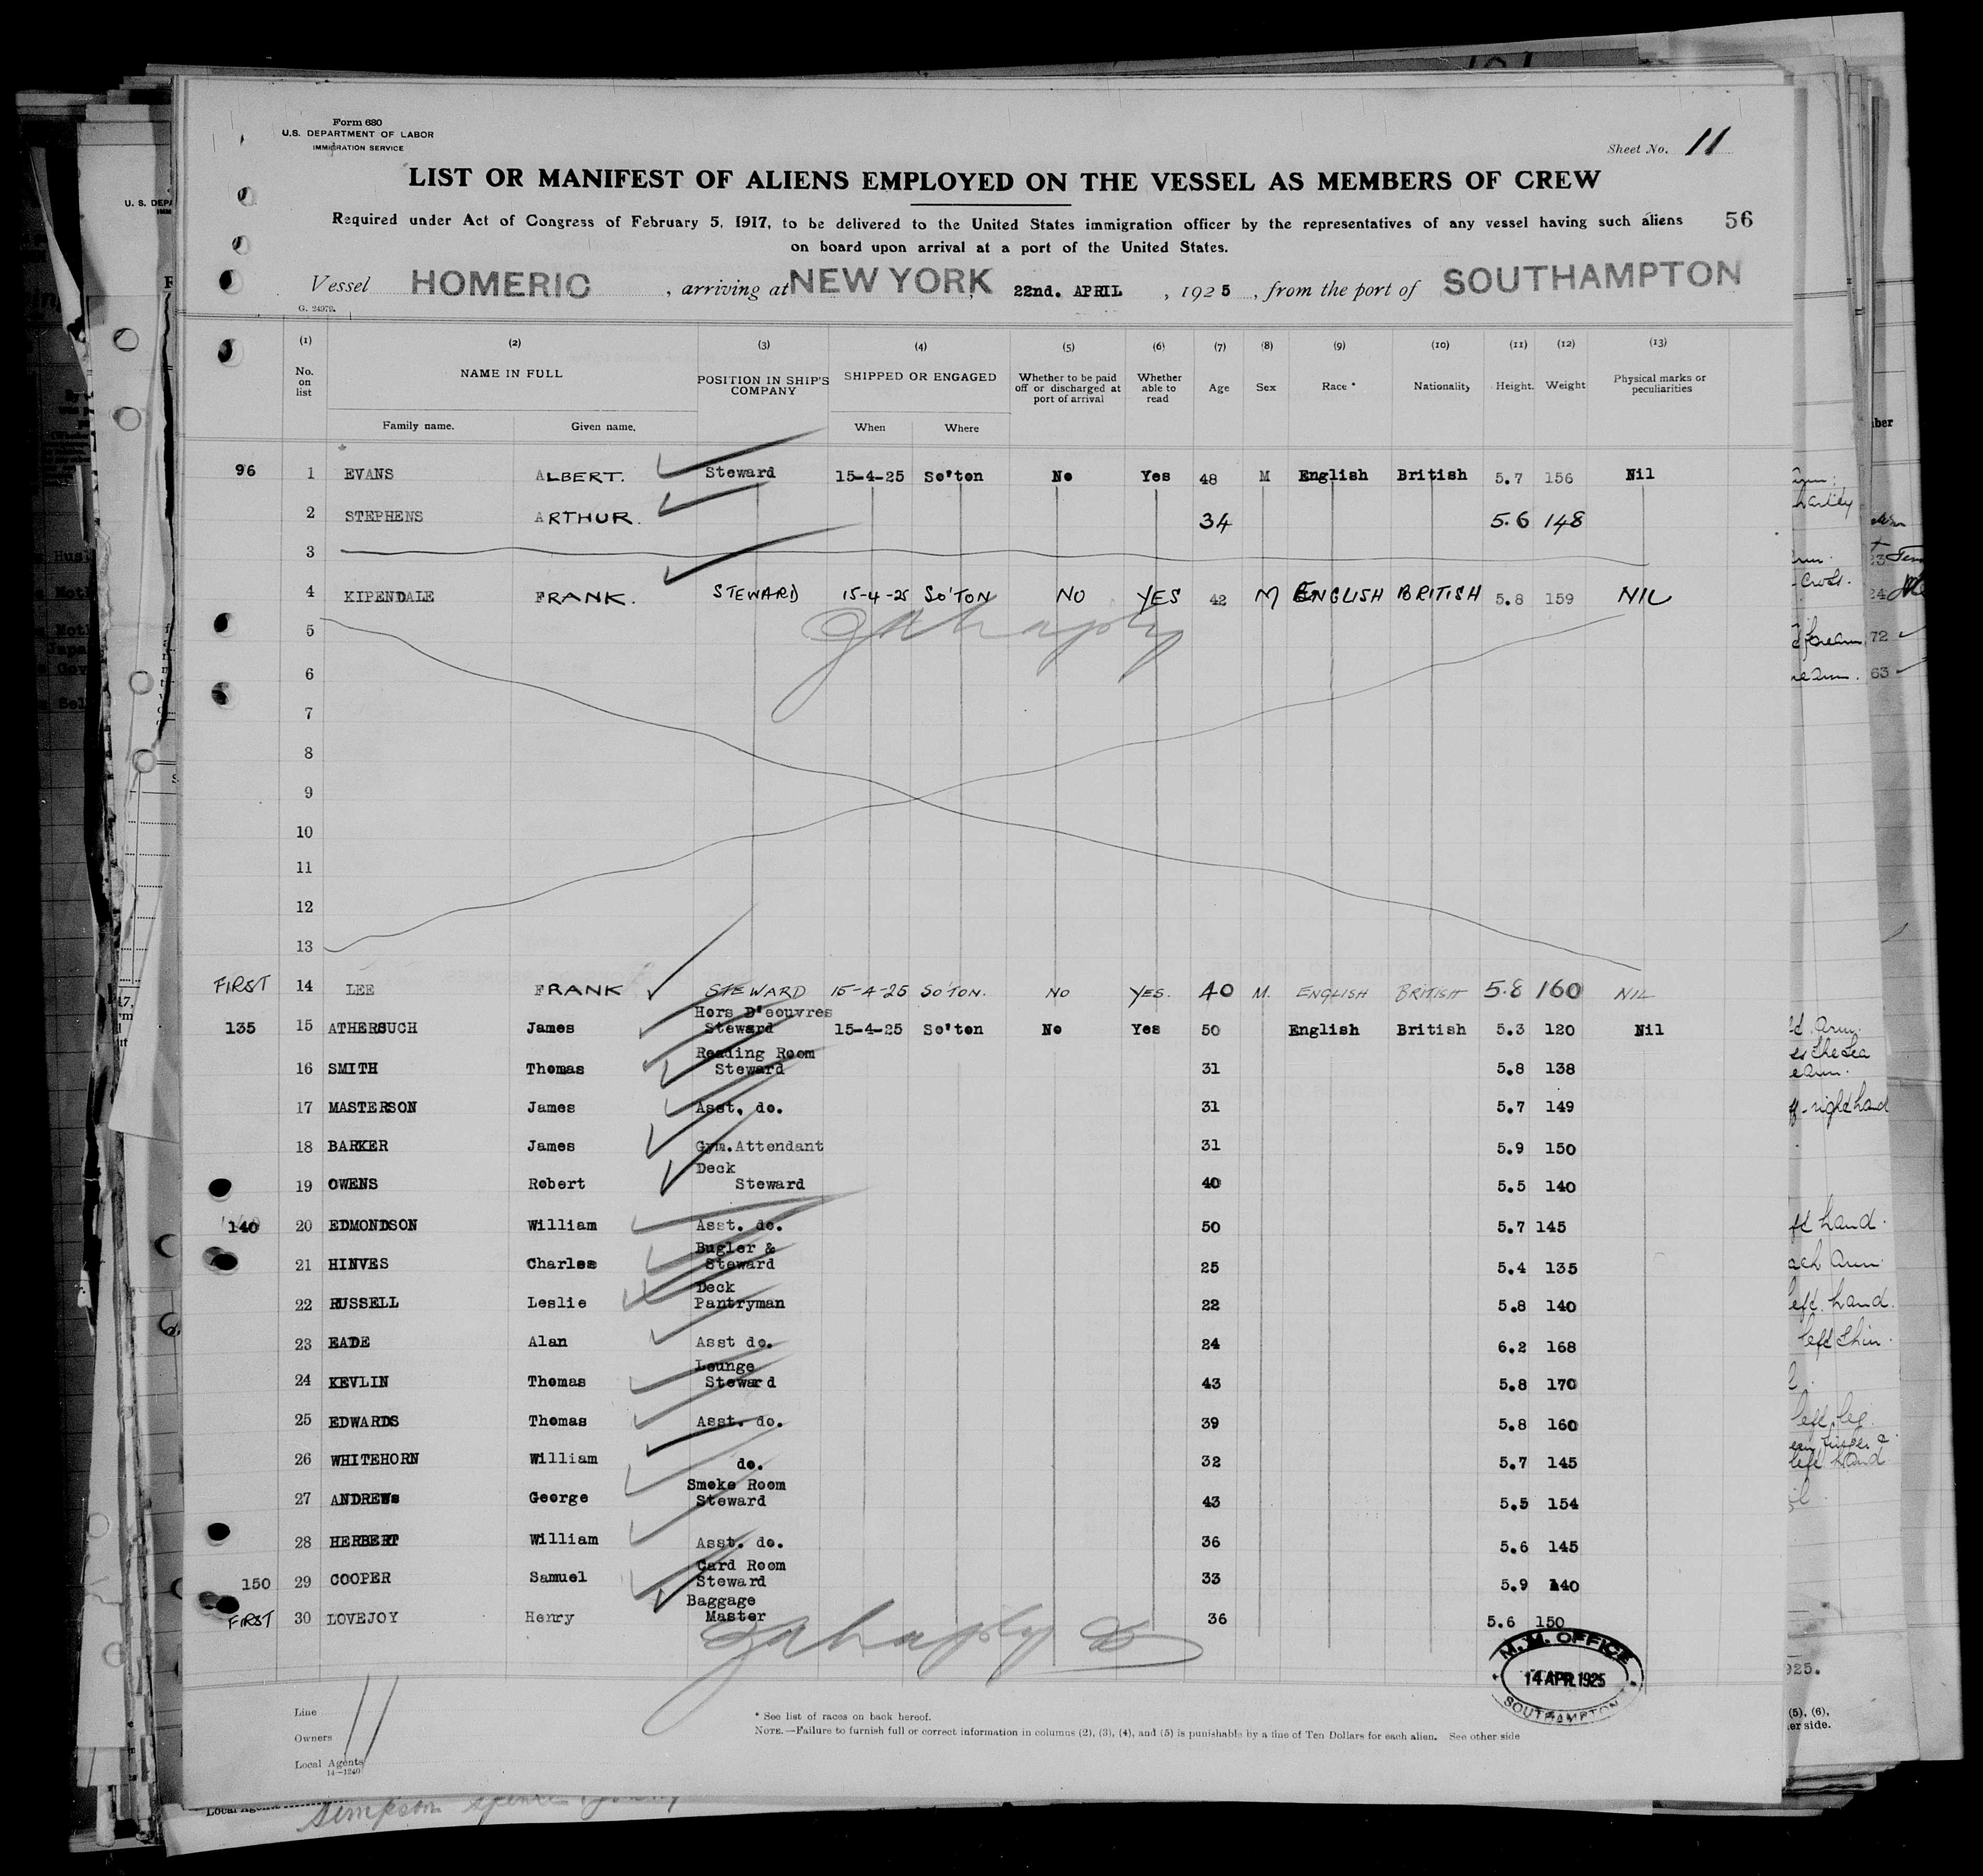 Form 680
U.S. DEPARTMENT OF LABOR
IMMIGRATION SERVICE
Sheet No. 11
LIST OR MANIFEST OF ALIENS EMPLOYED ON THE VESSEL AS MEMBERS OF CREW
Required under Act of Congress of February 5, 1917, to be delivered to the United States immigration officer by the representatives of any vessel having such aliens 56
on board upon arrival at a port of the United States.
Vessel HOMERIC, arriving at NEW YORK, 22nd. APRIL, 1925, from the port of SOUTHAMPTON
G. 24979.
(1) (2) (3) (4) (5) (6) (7) (8) (9) (10) (11) (12) (13)
No. on list NAME IN FULL POSITION IN SHIP'S COMPANY SHIPPED OR ENGAGED Whether to be paid off or discharged at port of arrival Whether able to read Age Sex Race * Nationality Height. Weight Physical marks or peculiarities
Family name. Given name. When Where
96 1 EVANS ALBERT. Steward 15-4-25 So'ton No Yes 48 M English British 5.7 156 Nil
2 STEPHENS ARTHUR. 34 5.6 148
3
4 KIPENDALE FRANK. STEWARD 15-4-25 SO'TON NO YES 42 M ENGLISH BRITISH 5.8 159 NIL
5
6
7
8
9
10
11
12
13
FIRST 14 LEE FRANK STEWARD 15-4-25 SO'TON. NO YES. 40 M. ENGLISH BRITISH 5.8 160 NIL
135 15 ATHERSUCH James Hors D'eouvres Steward 15-4-25 So'ton No Yes 50 English British 5.3 120 Nil
16 SMITH Thomas Reading Room Steward 31 5.8 138
17 MASTERSON James Asst. do. 31 5.7 149
18 BARKER James Gym.Attendant 31 5.9 150
19 OWENS Robert Deck Steward 40 5.5 140
140 20 EDMONDSON William Asst. do. 50 5.7 145
21 HINVES Charles Bugler & Steward 25 5.4 135
22 RUSSELL Leslie Deck Pantryman 22 5.8 140
23 EADE Alan Asst do. 24 6.2 168
24 KEVLIN Thomas Lounge Steward 43 5.8 170
25 EDWARDS Thomas Asst. do. 39 5.8 160
26 WHITEHORN William do. 32 5.7 145
27 ANDREWs George Smoke Room Steward 43 5.5 154
28 HERBERT William Asst. do. 36 5.6 145
150 29 COOPER Samuel Card Room Steward 33 5.9 140
FIRST 30 LOVEJOY Henry Baggage Master 36 5.6 150
M.M. OFFICE
14 APR 1925
SOUTHAMPTON
Line
Owners
Local Agents
14—1240
11
* See list of races on back hereof.
NOTE.—Failure to furnish full or correct information in columns (2), (3), (4), and (5) is punishable by a fine of Ten Dollars for each alien. See other side